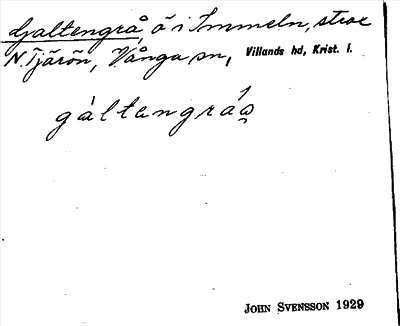 Galtengrå, ö i Immeln, strax
N. Tjärön, Vånga sn, Villands hd, Krist. l.
gàltengrá
JOHN SVENSSON 1929